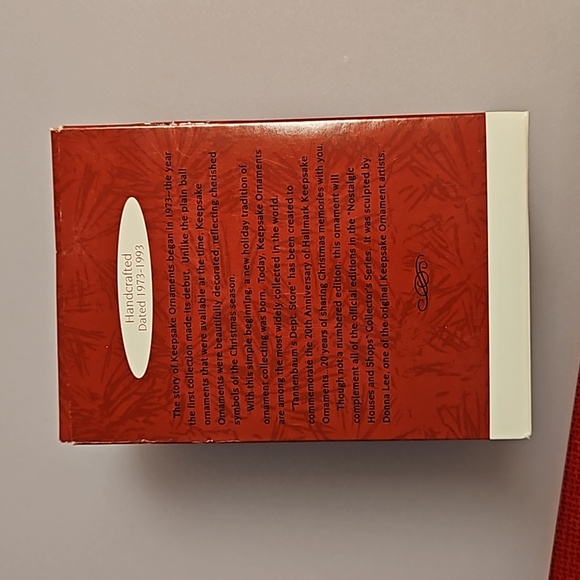 Handcrafted
Dated 1973-1993
The story of Keepsake Ornaments began in 1973—the year
the first collection made its debut. Unlike the plain ball
ornaments that were available at the time, Keepsake
Ornaments were beautifully decorated, reflecting cherished
symbols of the Christmas season.
With this simple beginning, a new holiday tradition of
ornament collecting was born. Today, Keepsake Ornaments
are among the most widely collected in the world.
"Tannenbaum's Dept. Store" has been created to
commemorate the 20th Anniversary of Hallmark Keepsake
Ornaments...20 years of sharing Christmas memories with you.
Though not a numbered edition, this ornament will
complement all of the official editions in the "Nostalgic
Houses and Shops" Collector's Series. It was sculpted by
Donna Lee, one of the original Keepsake Ornament artists.